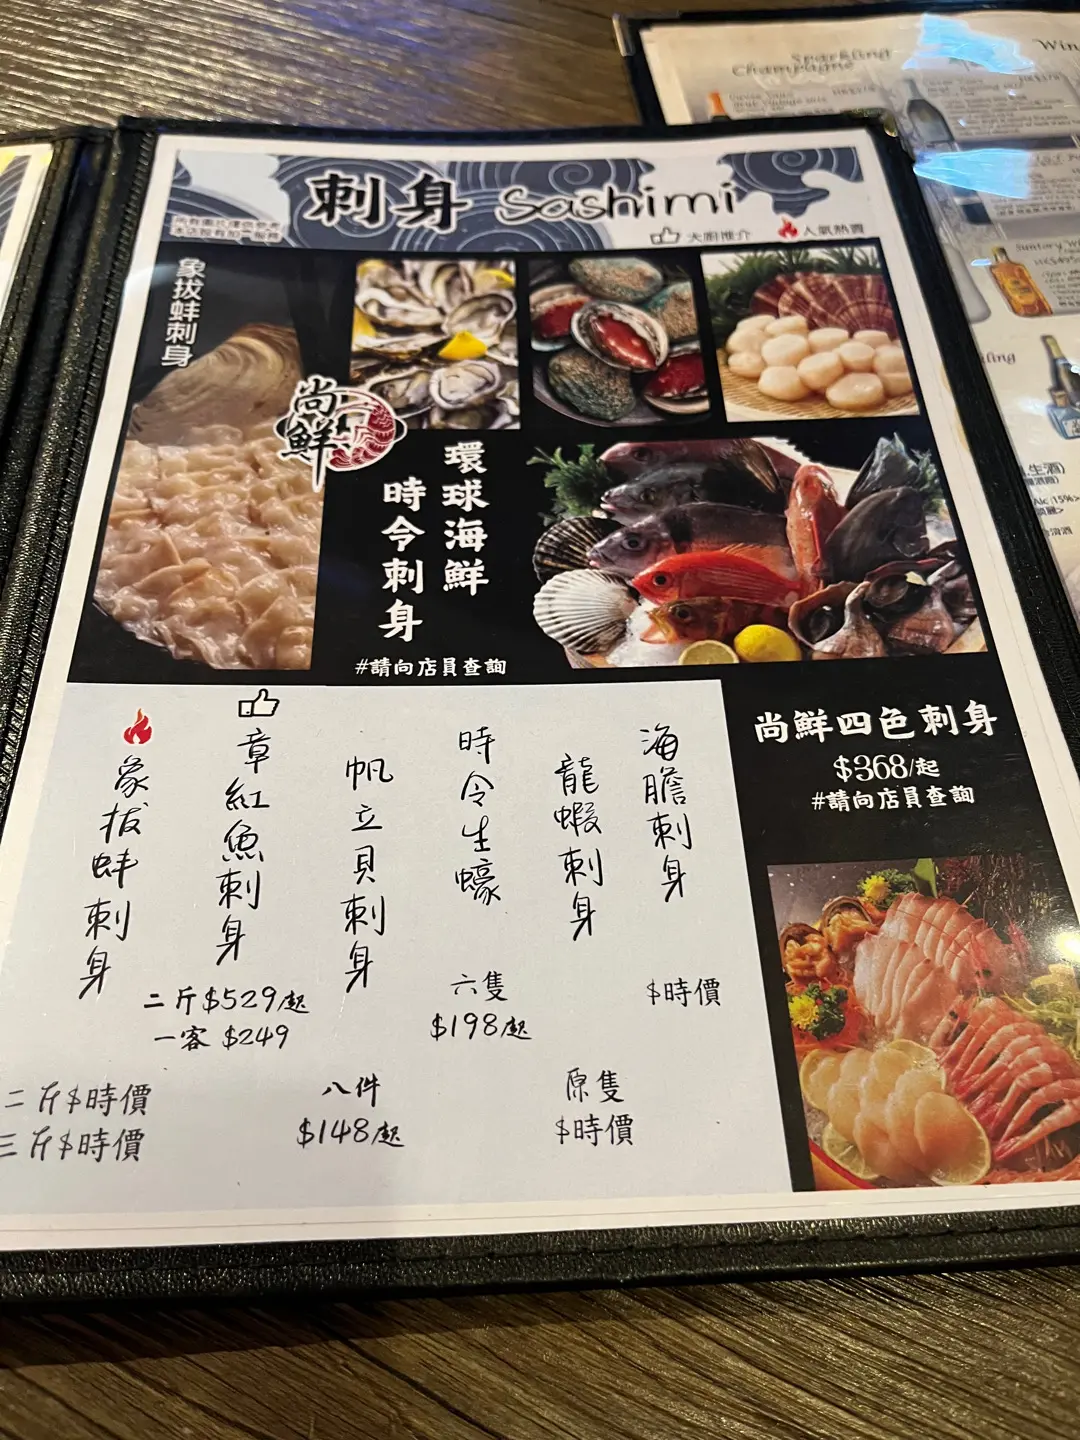 刺身 Sashimi
大廚推介
人氣熱賣
象拔蚌刺身
尚鮮
環球海鮮
時令刺身
#請向店員查詢
尚鮮四色刺身
$368/起
#請向店員查詢
海膽刺身
$時價
龍蝦刺身
原隻
$時價
時令生蠔
六隻
$198起
帆立貝刺身
八件
$148起
章紅魚刺身
二斤$529起
一客 $249
象拔蚌刺身
二斤$時價
三斤$時價
Sparkling
Champagne
Win
Suntory W